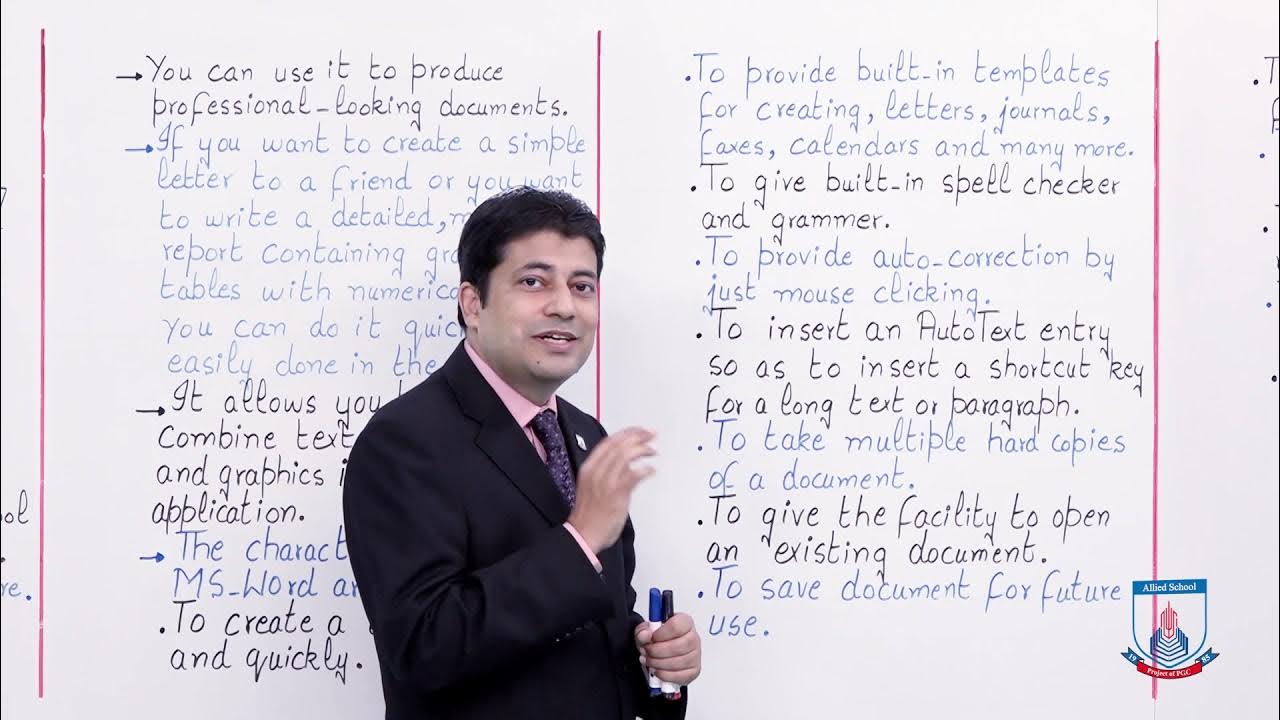 → You can use it to produce
professional-looking documents.
→ If you want to create a simple
letter to a friend or you want
to write a detailed,
report containing
tables with
you can do it
easily done in the
→ It allows you
Combine text
and graphics
application.
→ The
MS-Word
. To create a
and quickly.
. To provide built-in templates
for creating, letters, journals,
faxes, calendars and many more.
. To give built-in spell checker
and grammer.
. To provide auto-correction by
just mouse clicking.
. To insert an AutoText entry
so as to insert a shortcut key
for a long text or paragraph.
. To take multiple hard copies
of a document.
. To give the facility to open
an existing document.
. To save document for future
use.
Allied School
19 85
Project of PGC